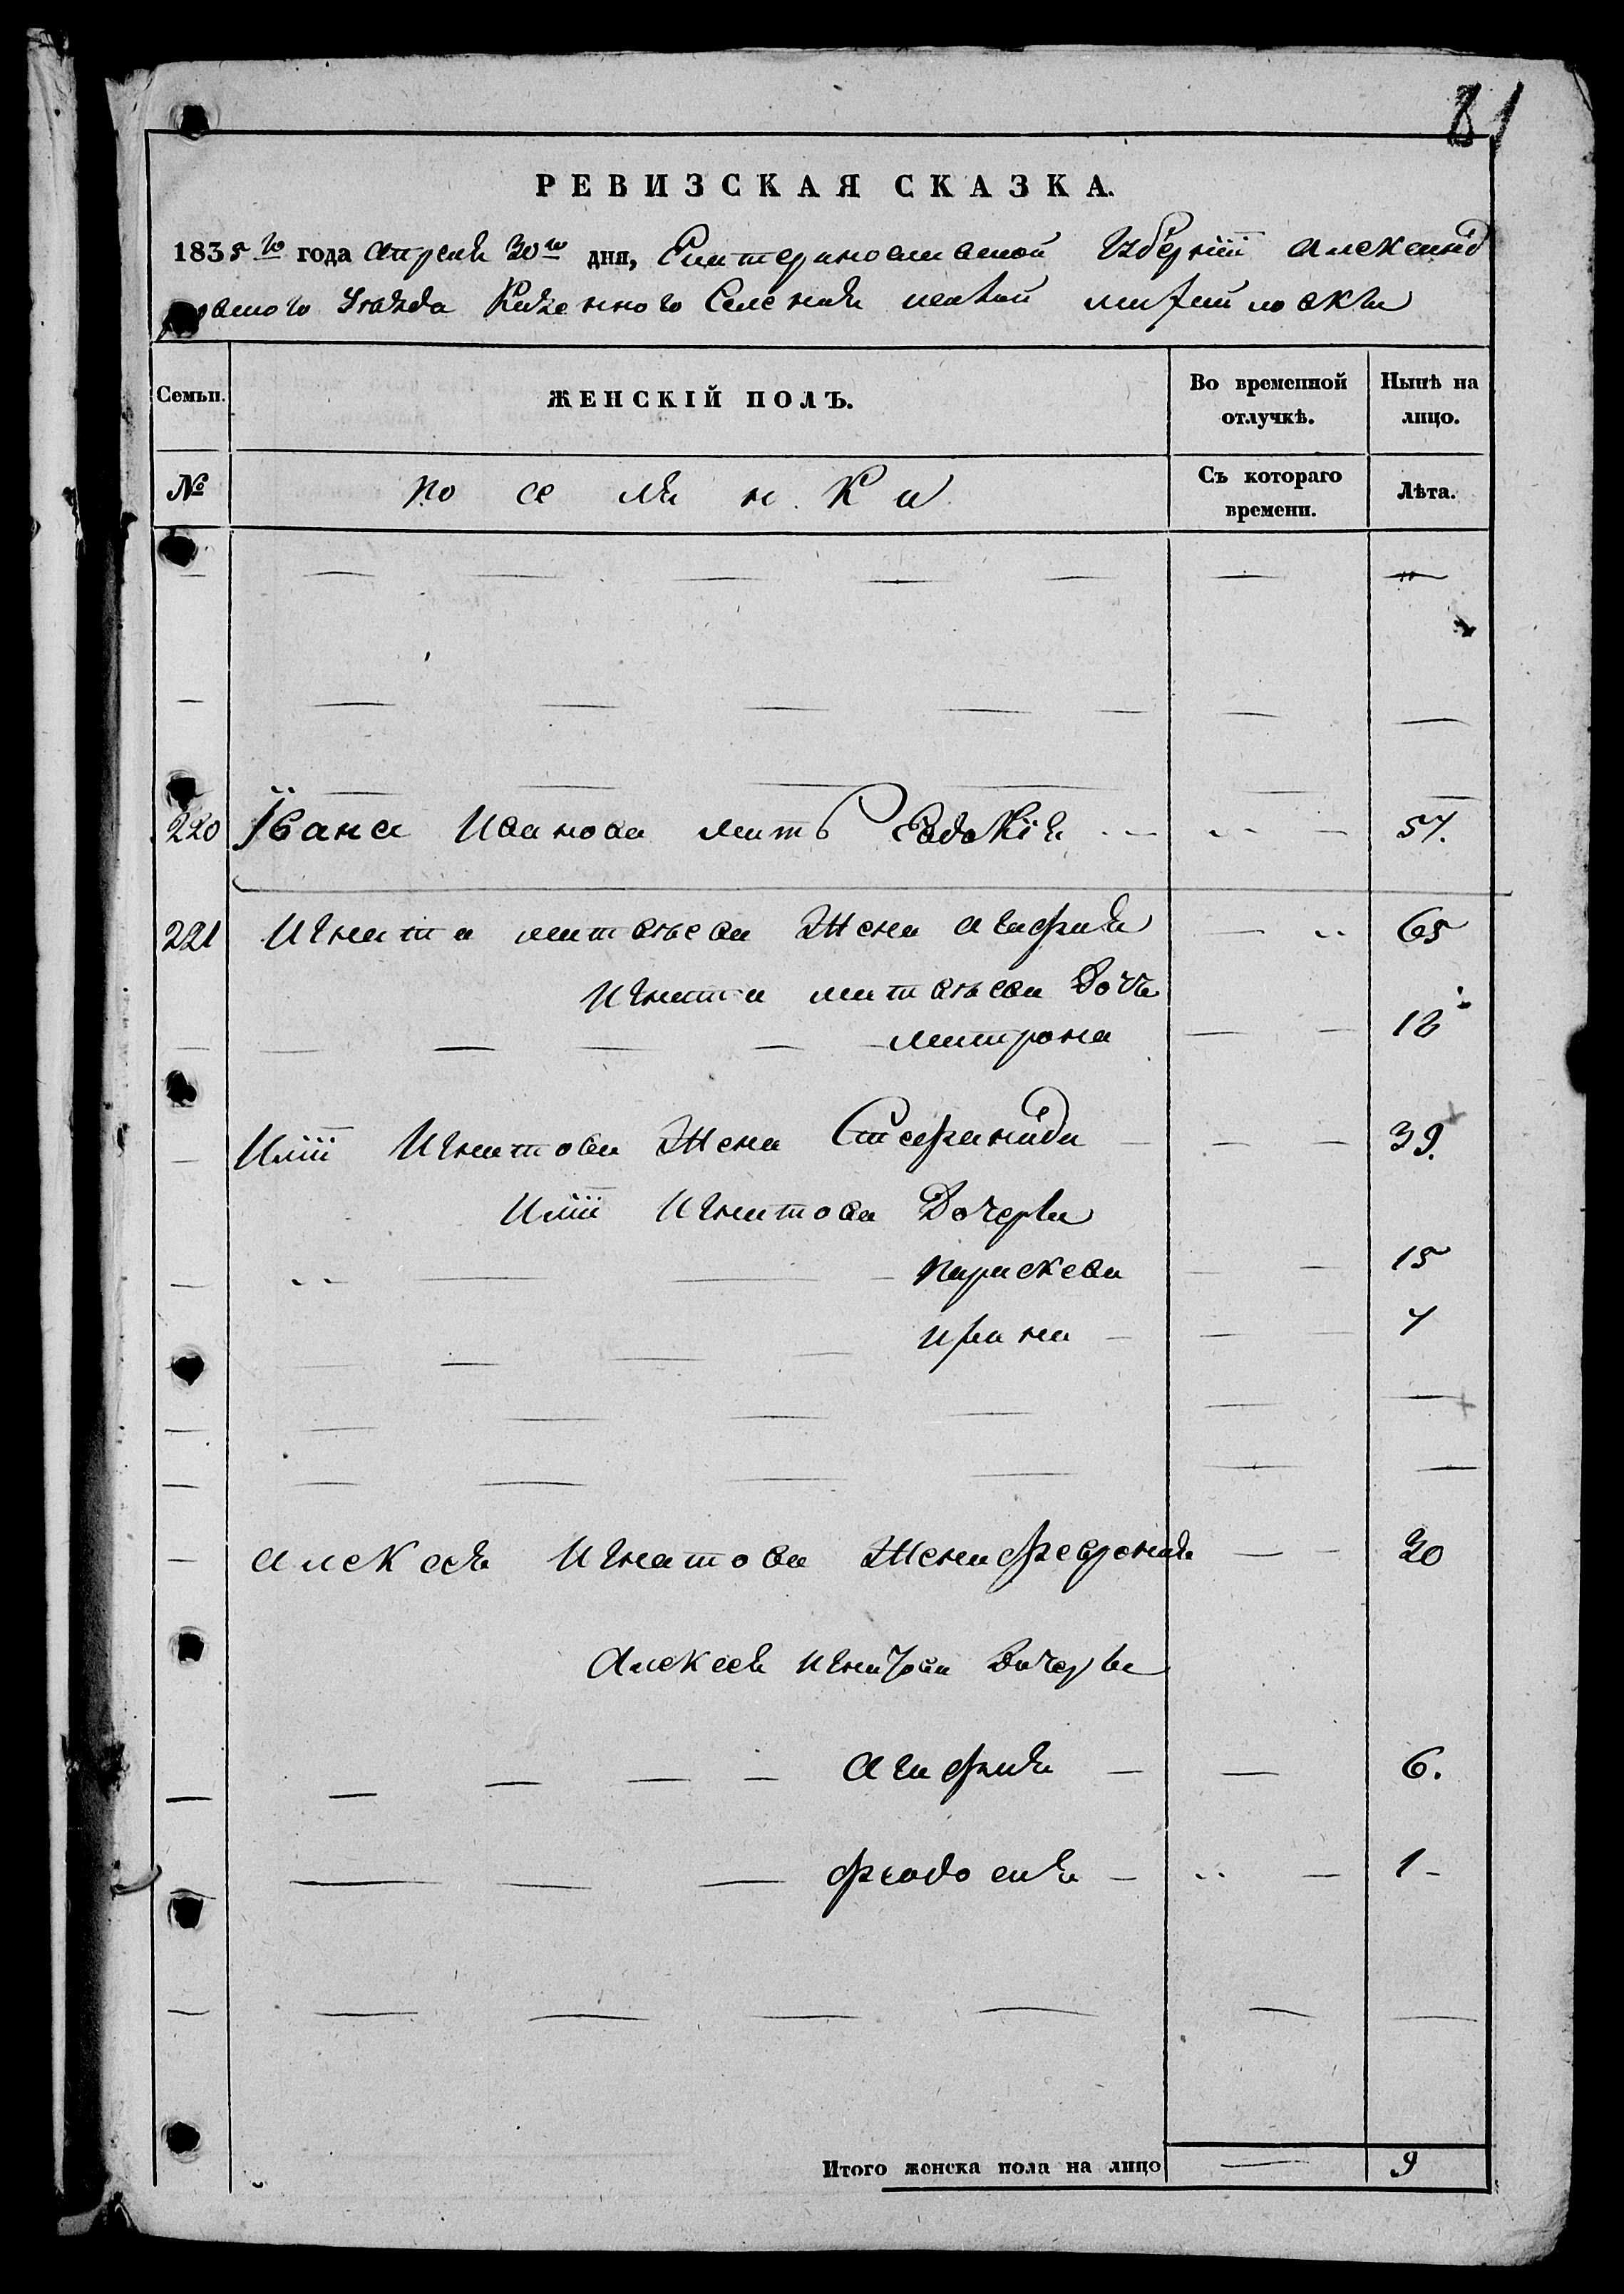 81
РЕВИЗСКАЯ СКАЗКА.
1835го года апреля 30го дня, Екатеринославской губернiи Александ
ровского уезда Казенного Селения малой михайловки
Семьи. ЖЕНСКІЙ ПОЛЪ. Во временной отлучкѣ. Нынѣ на лицо.
№ поселянки Съ котораго времени. Лѣта.
220 Iвана Иванова мать Евдокiя 57.
221 Игната матвѣева Жена агафия 65
Игната матвѣева Дочь
матрона 18
Илiи Игнатова Жена Стефанида 39.
Илiи Игнатова Дочери
параскева 15
ирина 7
алексея Игнатова Жена феврония 30
Алексея игнатова Дочери
агафия 6.
феодосия 1
Итого женска пола на лицо 9